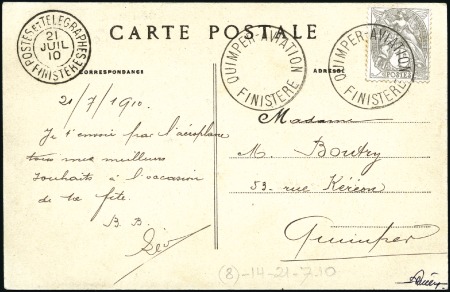 CARTE POSTALE
POSTES ET TELEGRAPHES
21
JUIL
10
FINISTERE
QUIMPER-AVIATION
FINISTERE
QUIMPER-AVIATION
FINISTERE
POSTES
CORRESPONDANCE
ADRESSE
21/7/1910.
Je t'envoie par l'aéroplane
tous mes meilleurs
souhaits à l'occasion
de ta fête.
B. B.
Madame
M. Boutry
53 rue Kéréon
Quimper
(8)-14-21-7.10